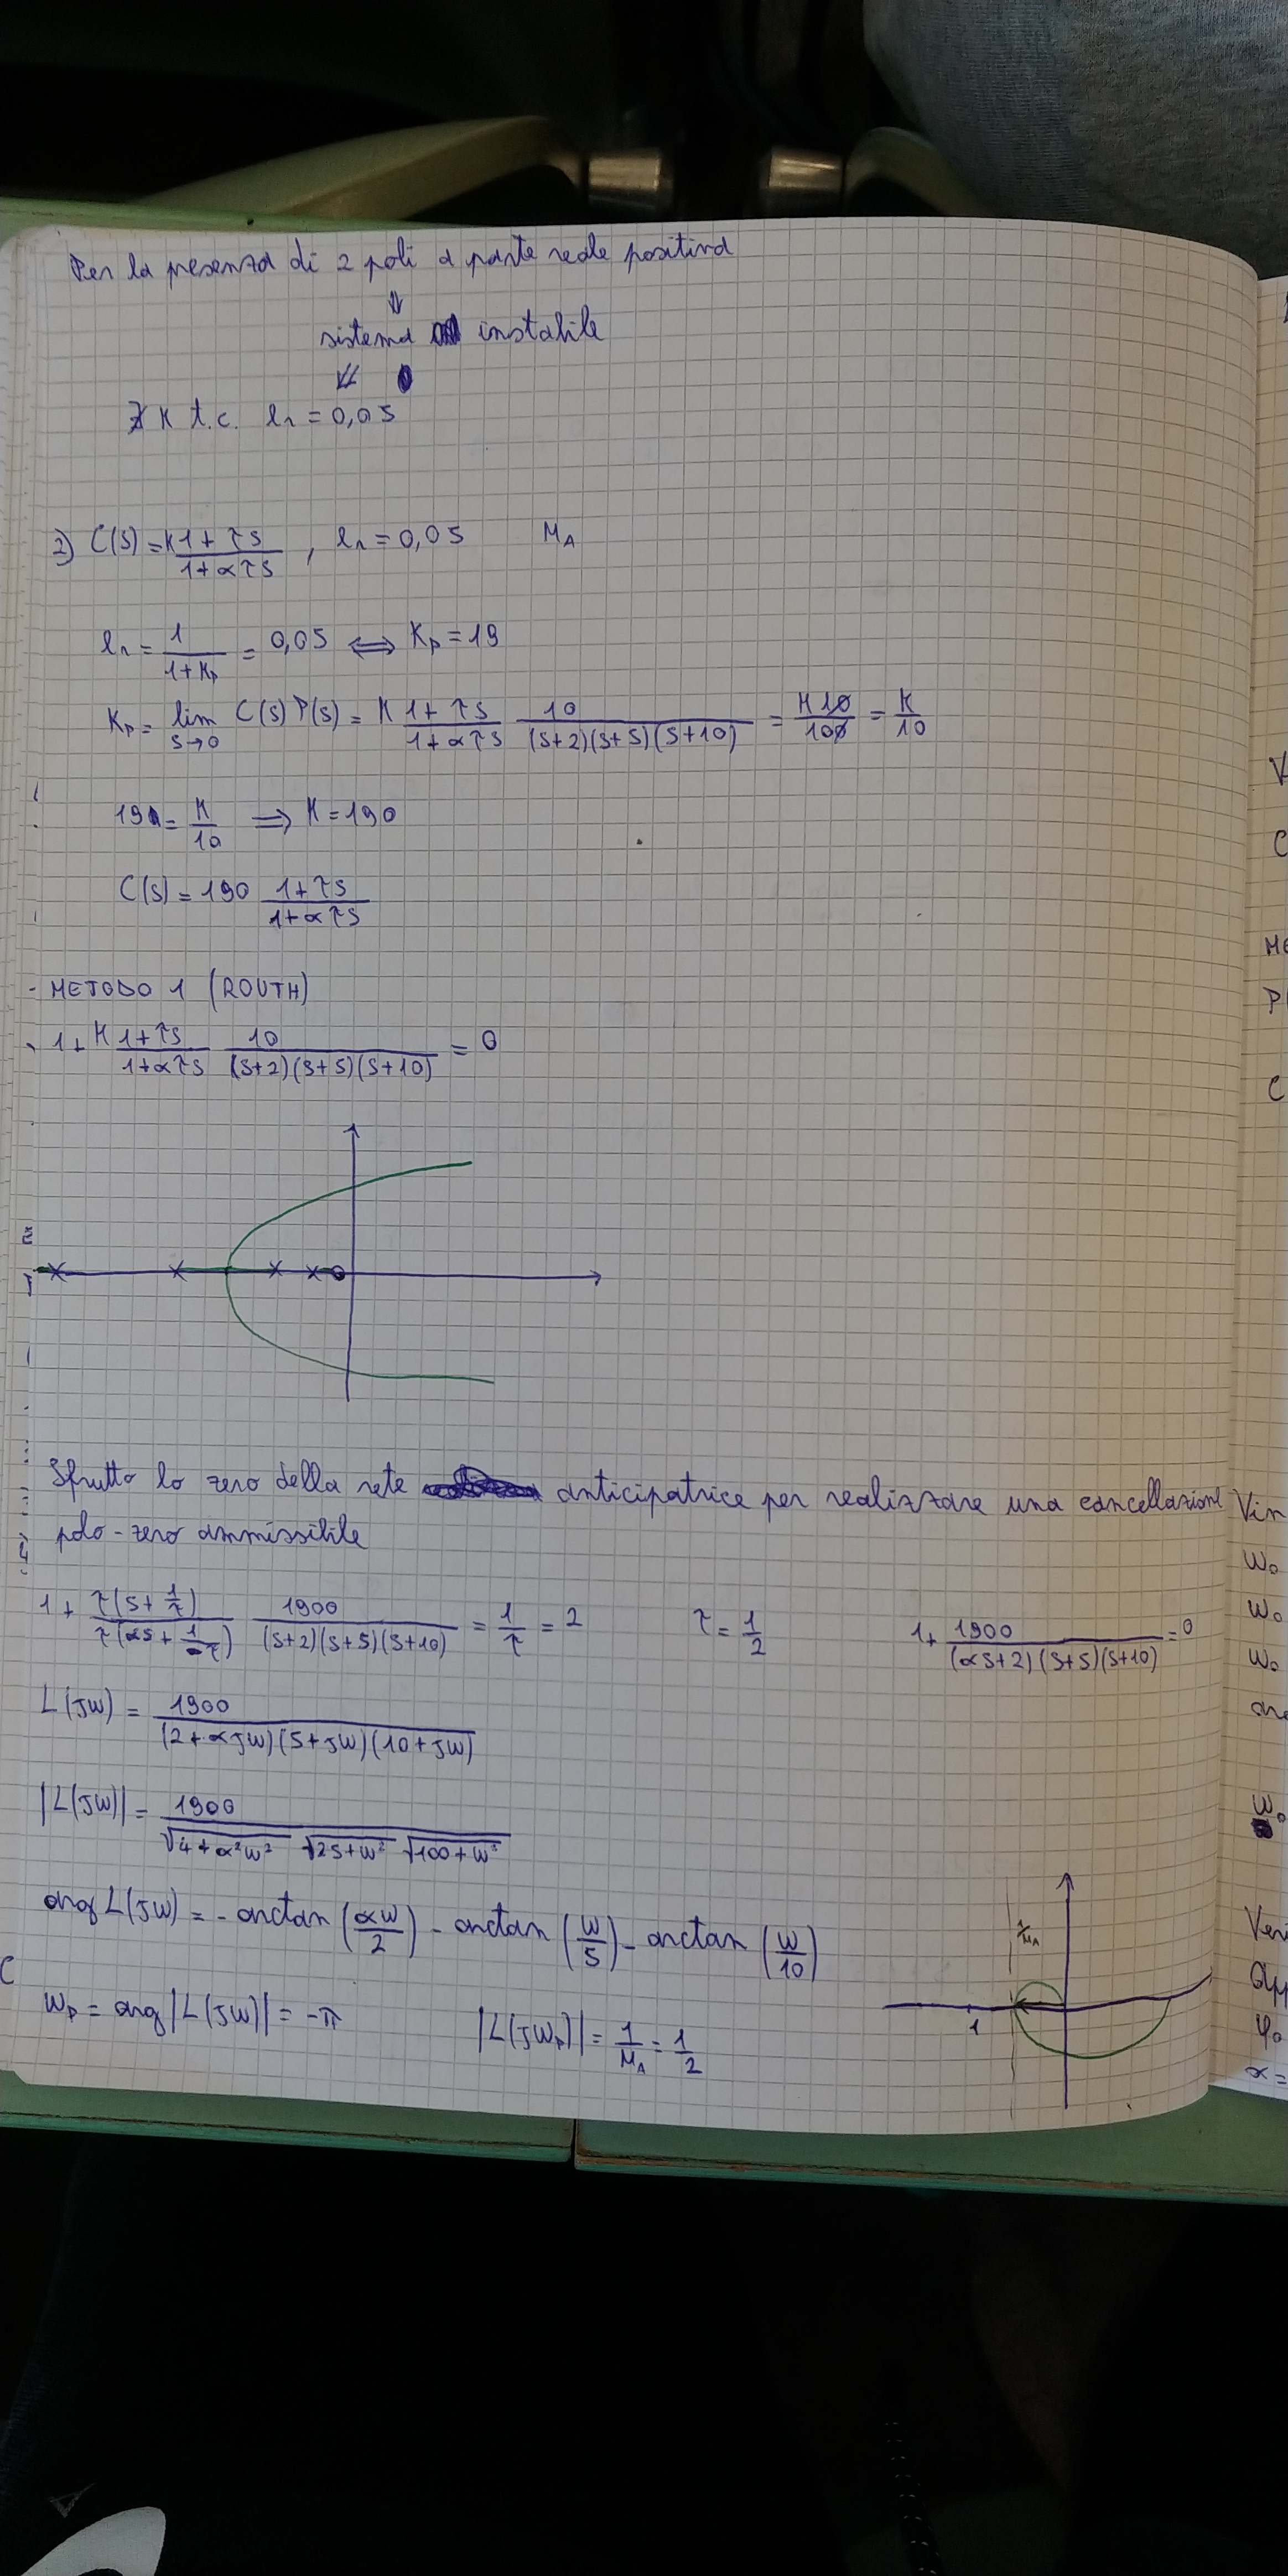 Per la presenza di 2 poli a parte reale positiva
⇓
sistema instabile
⇓
∄ K t.c. er = 0,05
2) C(s) = K (1+τs)/(1+ατs) , er = 0,05 MA
er = 1/(1+Kp) = 0,05 ⟺ Kp = 19
Kp = lim s→0 C(s) P(s) = K (1+τs)/(1+ατs) 10/((s+2)(s+5)(s+10)) = K10/100 = K/10
19 = K/10 ⟹ K = 190
C(s) = 190 (1+τs)/(1+ατs)
- METODO 1 (ROUTH)
1 + K (1+τs)/(1+ατs) 10/((s+2)(s+5)(s+10)) = 0
Sfrutto lo zero della rete anticipatrice per realizzare una cancellazione
polo-zero ammissibile
1 + τ(s+1/τ)/τ(αs+1/τ) 1900/((s+2)(s+5)(s+10)) = 1/τ = 2 τ = 1/2 1 + 1900/((αs+2)(s+5)(s+10)) = 0
L(jw) = 1900/((2+αjw)(5+jw)(10+jw))
|L(jw)| = 1900/(√4+α²w² √25+w² √100+w²)
arg L(jw) = - arctan (αw/2) - arctan (w/5) - arctan (w/10)
1/MA
1
wp = arg |L(jw)| = -π |L(jwp)| = 1/MA = 1/2